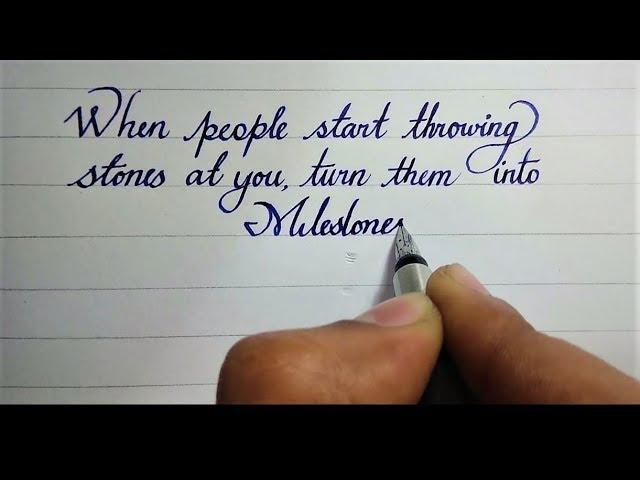 When people start throwing
stones at you, turn them into
Milestones